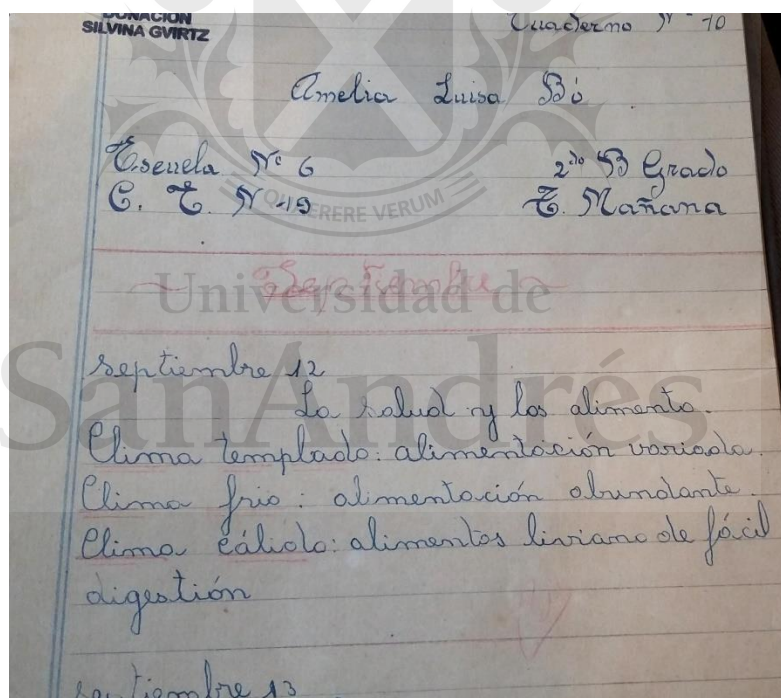 DONACION
SILVINA GVIRTZ
Cuaderno Nº 10
Amelia Luisa Bó
Escuela Nº 6 2do B Grado
C. E. Nº 19 T. Mañana
QUAERERE VERUM
Septiembre
Universidad de
SanAndrés
septiembre 12
La salud y los alimento.
Clima templado: alimentación variada.
Clima frio: alimentación abundante.
Clima cálido: alimentos liviano de fácil
digestión
septiembre 13